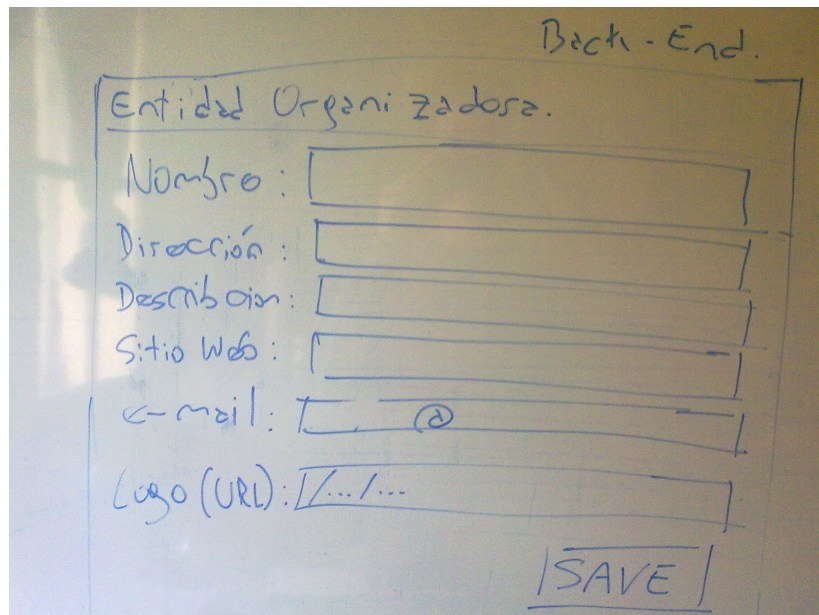 Back-End.
Entidad Organizadora.
Nombre:
Dirección:
Describcion:
Sitio Web:
e-mail: @
Logo (URL): /.../...
SAVE